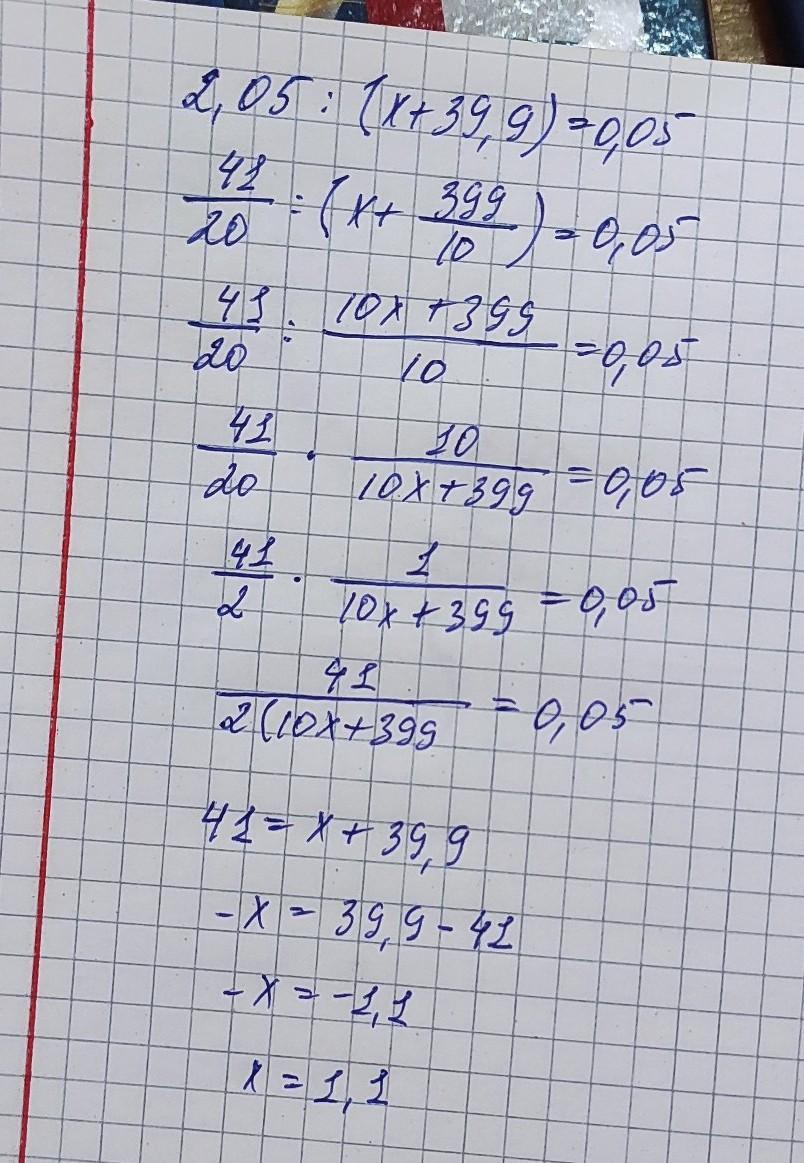 2,05 : (x+39,9)=0,05
41/20 : (x+ 399/10) = 0,05
41/20 : (10x+399)/10 =0,05
41/20 · 10/(10x+399) = 0,05
41/2 · 1/(10x+399) = 0,05
41/2(10x+399 = 0,05
41= x+39,9
-x = 39,9-41
-x = -1,1
x = 1,1